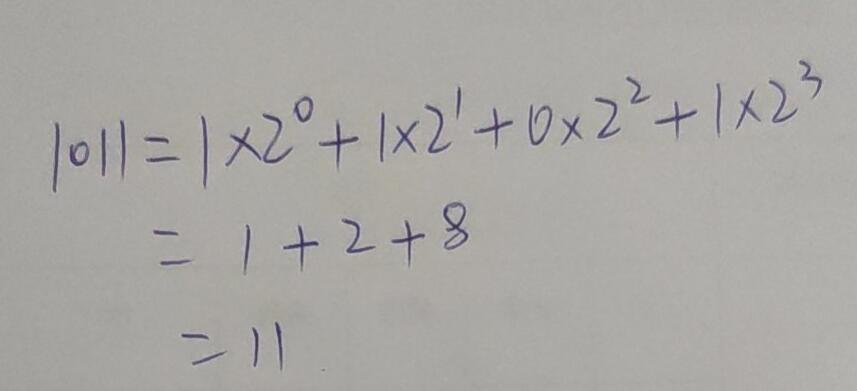 1011=1×2⁰+1×2¹+0×2²+1×2³
=1+2+8
=11